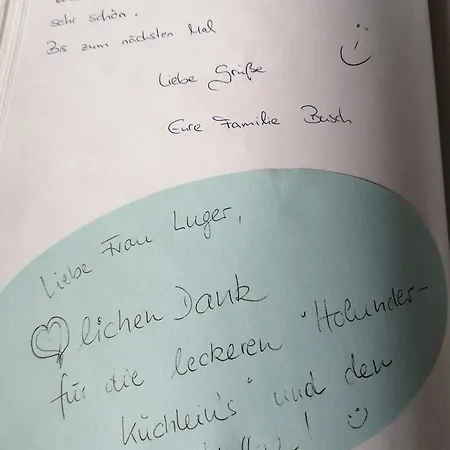 sehr schön.
Bis zum nächsten Mal
Liebe Grüße
Eure Familie Busch
Liebe Frau Luger,
lichen Dank
für die leckeren "Holunder-
küchlein's" und den